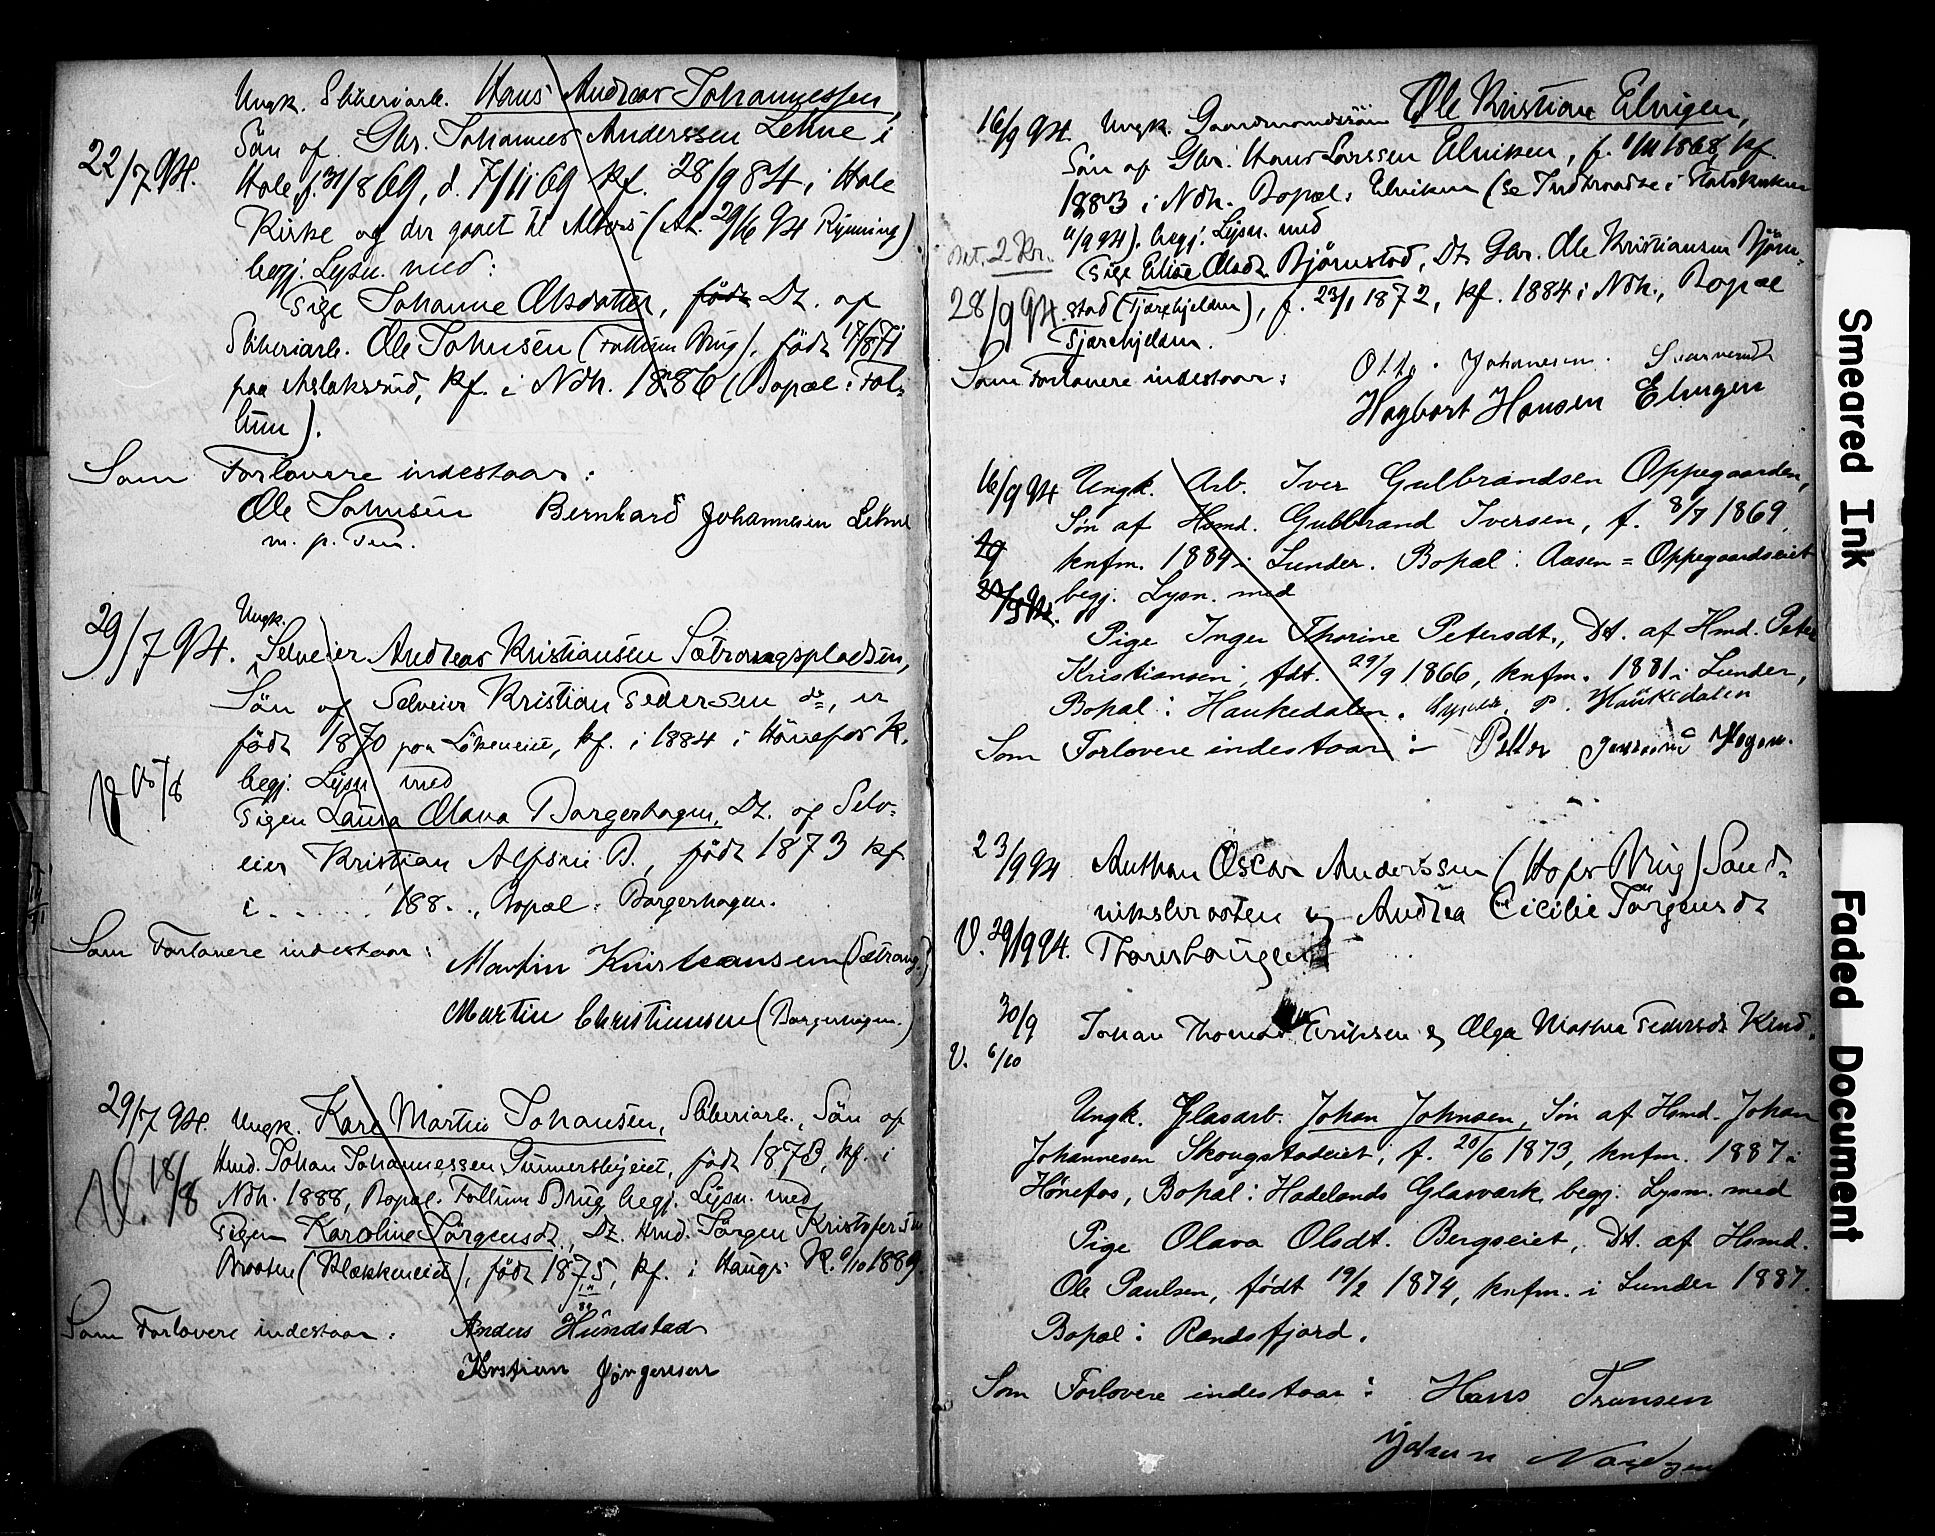 Ungk. Sliberiarb. Hans Andreas Johannessen,
22/7 94. Sön af Gbr. Johannes Anderssen Lehne i
Hole f. 31/8 69, d. 7/11 69 kf. 28/9 84 i Hole
Kirke og der gaaet til Alters (At. 29/6 94 Rynning)
begj. Lysn. med:
Pige Johanne Olsdatter, født Dt. af
Sliberiarb. Ole Johnsen (Follum Brug), född 17/8 71
paa Aslaksrud, kf. i Ndh. 1886 (Bopæl: Fol-
lum).
Som Forlovere indestaar:
Ole Johnsen Bernhard Johannesen Lehne
m. p. Pen.
29/7 94. Ungk.
Selveier Andreas Kristiansen Sætrangspladsen,
Sön af Selveier Kristian Pedersen do, er
född 1870 paa Lökeneiet, kf. i 1884 i Hönefos K.
begj. Lysn med
Pigen Laura Olava Borgerhagen, Dt. af Selv-
eier Kristian Alfsen B., född 1873 kf
i . . . . . 188 . , Bopæl: Borgerhagen.
Som Forlovere indestaar:
Martin Kristiansen (Sætrang)
Martin Christiansen (Borgerhagen)
29/7 94. Ungk. Karl Martin Johansen, Sliberiarb., Sön af
Hmd. Johan Johannessen, född 1873, kf. i
V. 18/8 Ndh. 1888, Bopæl. Follum Brug begj. Lysn. med
Pigen Karoline Jörgensdt., Dt. Hmd. Jörgen Kristofersen
Braaten (Klækkeneiet), född 1875, kf. i Haugs K. 6/10 1889.
Som Forlovere indestaar:
Anders Hundstad
Kristian Jörgensen
16/9 94. Ungk. Gaardmandssön Ole Kristian Elvigen,
Sön af Gbr. Hans Larssen Elviken, f. 1/11 1868, kf.
1883 i Ndh. Bopæl: Elviken (se Indtraadte i Statskirken
11/9 94). begj. Lysn. med
Bet. 2 Kr. Pige Elise Olsdt. Björnstad, Dt. Gbr. Ole Kristiansen Björn-
28/9 94. stad (Tjærehjelden), f. 23/1 1872, kf. 1884 i Ndh., Bopæl
Tjærehjelden.
Som Forlovere indestaar: Otto Johanesen
Hagbart Hansen Elvigen
16/9 94 Ungk. Arb. Iver Gulbrandsen Oppegaarden,
Søn af Hsmd. Gulbrand Iversen, f. 8/7 1869,
knfm. 1884 i Lunder. Bopæl: Aasen = Oppegaardseiet
begj. Lysn. med
Pige Inger Thorine Petersdt., Dt. af Hmd. Peter
Kristiansen, fdt. 29/9 1866, knfm. 1881 i Lunder,
Bopal: Haukedalen. P. Haukedalen
Som Forlovere indestaar:
23/9 94 Anthon Oscar Anderssen (Hofs Brug) Sand-
viksbraaten og Andrea Cicilie Jörgensdt
V. 29/9 94. Thoreshaugen
30/9 Johan Thomas Eriksen & Olga Mathea Pedersdt
V. 6/10
Ungk. Glasarb. Johan Johnsen, Søn af Hsmd. Johan
Johannesen Skougstadeiet, f. 20/6 1873, knfm. 1887 i
Hønefos, Bopæl: Hadelands Glasværk begj. Lysn. med
Pige Olava Olsdt. Bergseiet, Dt. af Hsmd.
Ole Paulsen, født 19/2 1874, knfm. i Lunder 1887.
Bopæl: Randsfjord.
Som Forlovere indestaar: Hans Transen
Smeared Ink
Faded Document